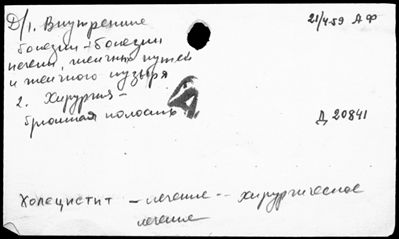 Д/1. Внутренние
болезни - болезни
печени, желчных путей
и желчного пузыря
2. Хирургия -
брюшная полость
21/4-59 АФ
Д 20841
Холецистит - лечение -- хирургическое
лечение